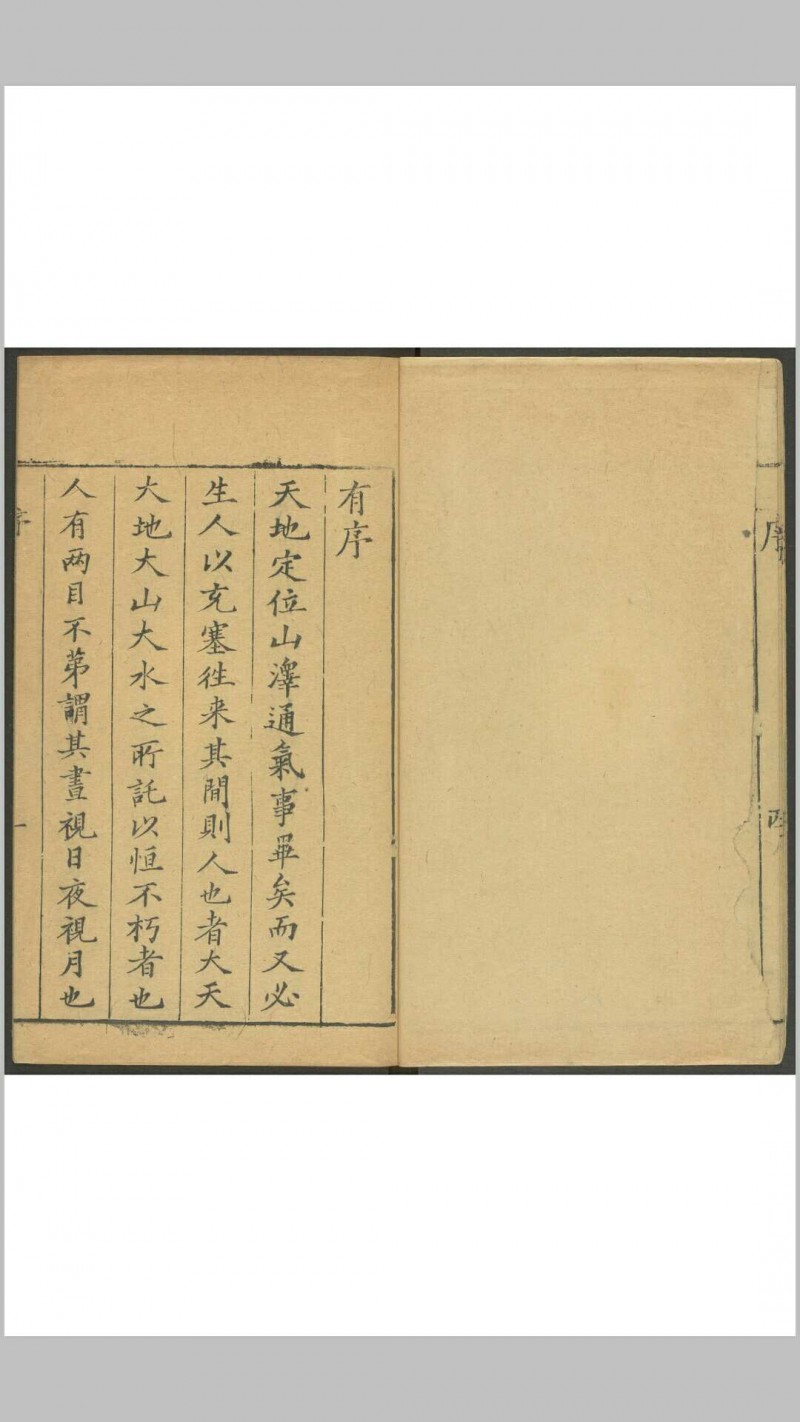 序
有序
天地定位山澤通氣事畢矣而又必
生人以充塞徃来其間則人也者大天
大地大山大水之所託以恒不朽者也
人有两目不第謂其晝視日夜視月也
序
一